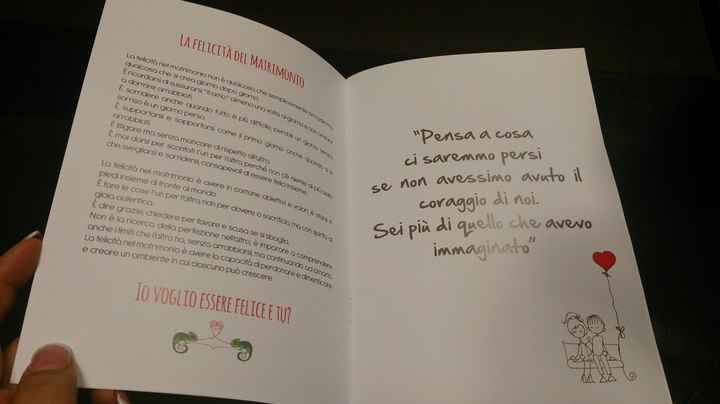 LA FELICITÀ DEL MATRIMONIO
La felicità nel matrimonio non è qualcosa che semplicemente
qualcosa che si crea giorno dopo giorno.
È ricordarsi di sussurrarsi "ti amo" almeno una volta al giorno e non andare
a dormire arrabbiati.
È sorridere anche quando tutto è più difficile, perché un giorno senza
sorriso è un giorno perso.
È supportarsi e sopportarsi come il primo giorno anche quando si è
arrabbiati.
È litigare ma senza mancare di rispetto all'altro.
È mai darsi per scontati l'un per l'altra perché non c'è niente di più bello
che svegliarsi e sorridersi, consapevoli di essere felici insieme.
La felicità nel matrimonio è avere in comune obiettivi e valori, è stare in
piedi insieme di fronte al mondo.
È fare le cose l'un per l'altra non per dovere o sacrificio, ma con spirito di
gioia autentica.
È dire grazie, chiedere per favore e scusa se si sbaglia.
Non è la ricerca della perfezione nell'altro, è imparare a comprendere
anche i limiti che l'altro ha, senza arrabbiarsi, ma continuando ad amarlo.
La felicità nel matrimonio è avere la capacità di perdonare e dimenticare
e creare un ambiente in cui ciascuno può crescere.
IO VOGLIO ESSERE FELICE E TU?
"Pensa a cosa
ci saremmo persi
se non avessimo avuto il
coraggio di noi.
Sei più di quello che avevo
immaginato"